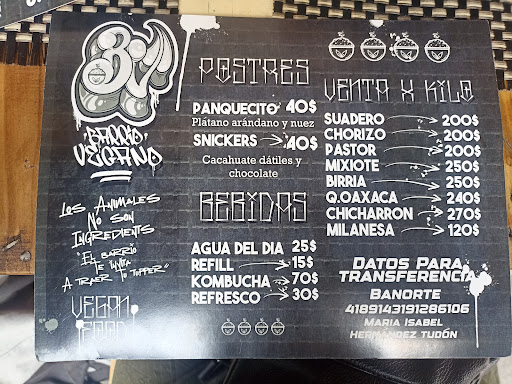 BV
BARRIO
VEGANO
LOS ANIMALES
NO SON
INGREDIENTS
"EL BARRIO
TE INVITA
A TRAER TU TOPPER"
VEGAN
FOOD
POSTRES
PANQUECITO 40$
Plátano arándano y nuez
SNICKERS 40$
Cacahuate dátiles y
chocolate
BEBIDAS
AGUA DEL DIA 25$
REFILL 15$
KOMBUCHA 70$
REFRESCO 30$
VENTA X KILO
SUADERO 200$
CHORIZO 200$
PASTOR 200$
MIXIOTE 250$
BIRRIA 250$
Q.OAXACA 240$
CHICHARRON 270$
MILANESA 120$
DATOS PARA
TRANSFERENCIA
BANORTE
4189143191286106
MARIA ISABEL
HERNÁNDEZ TUDÓN